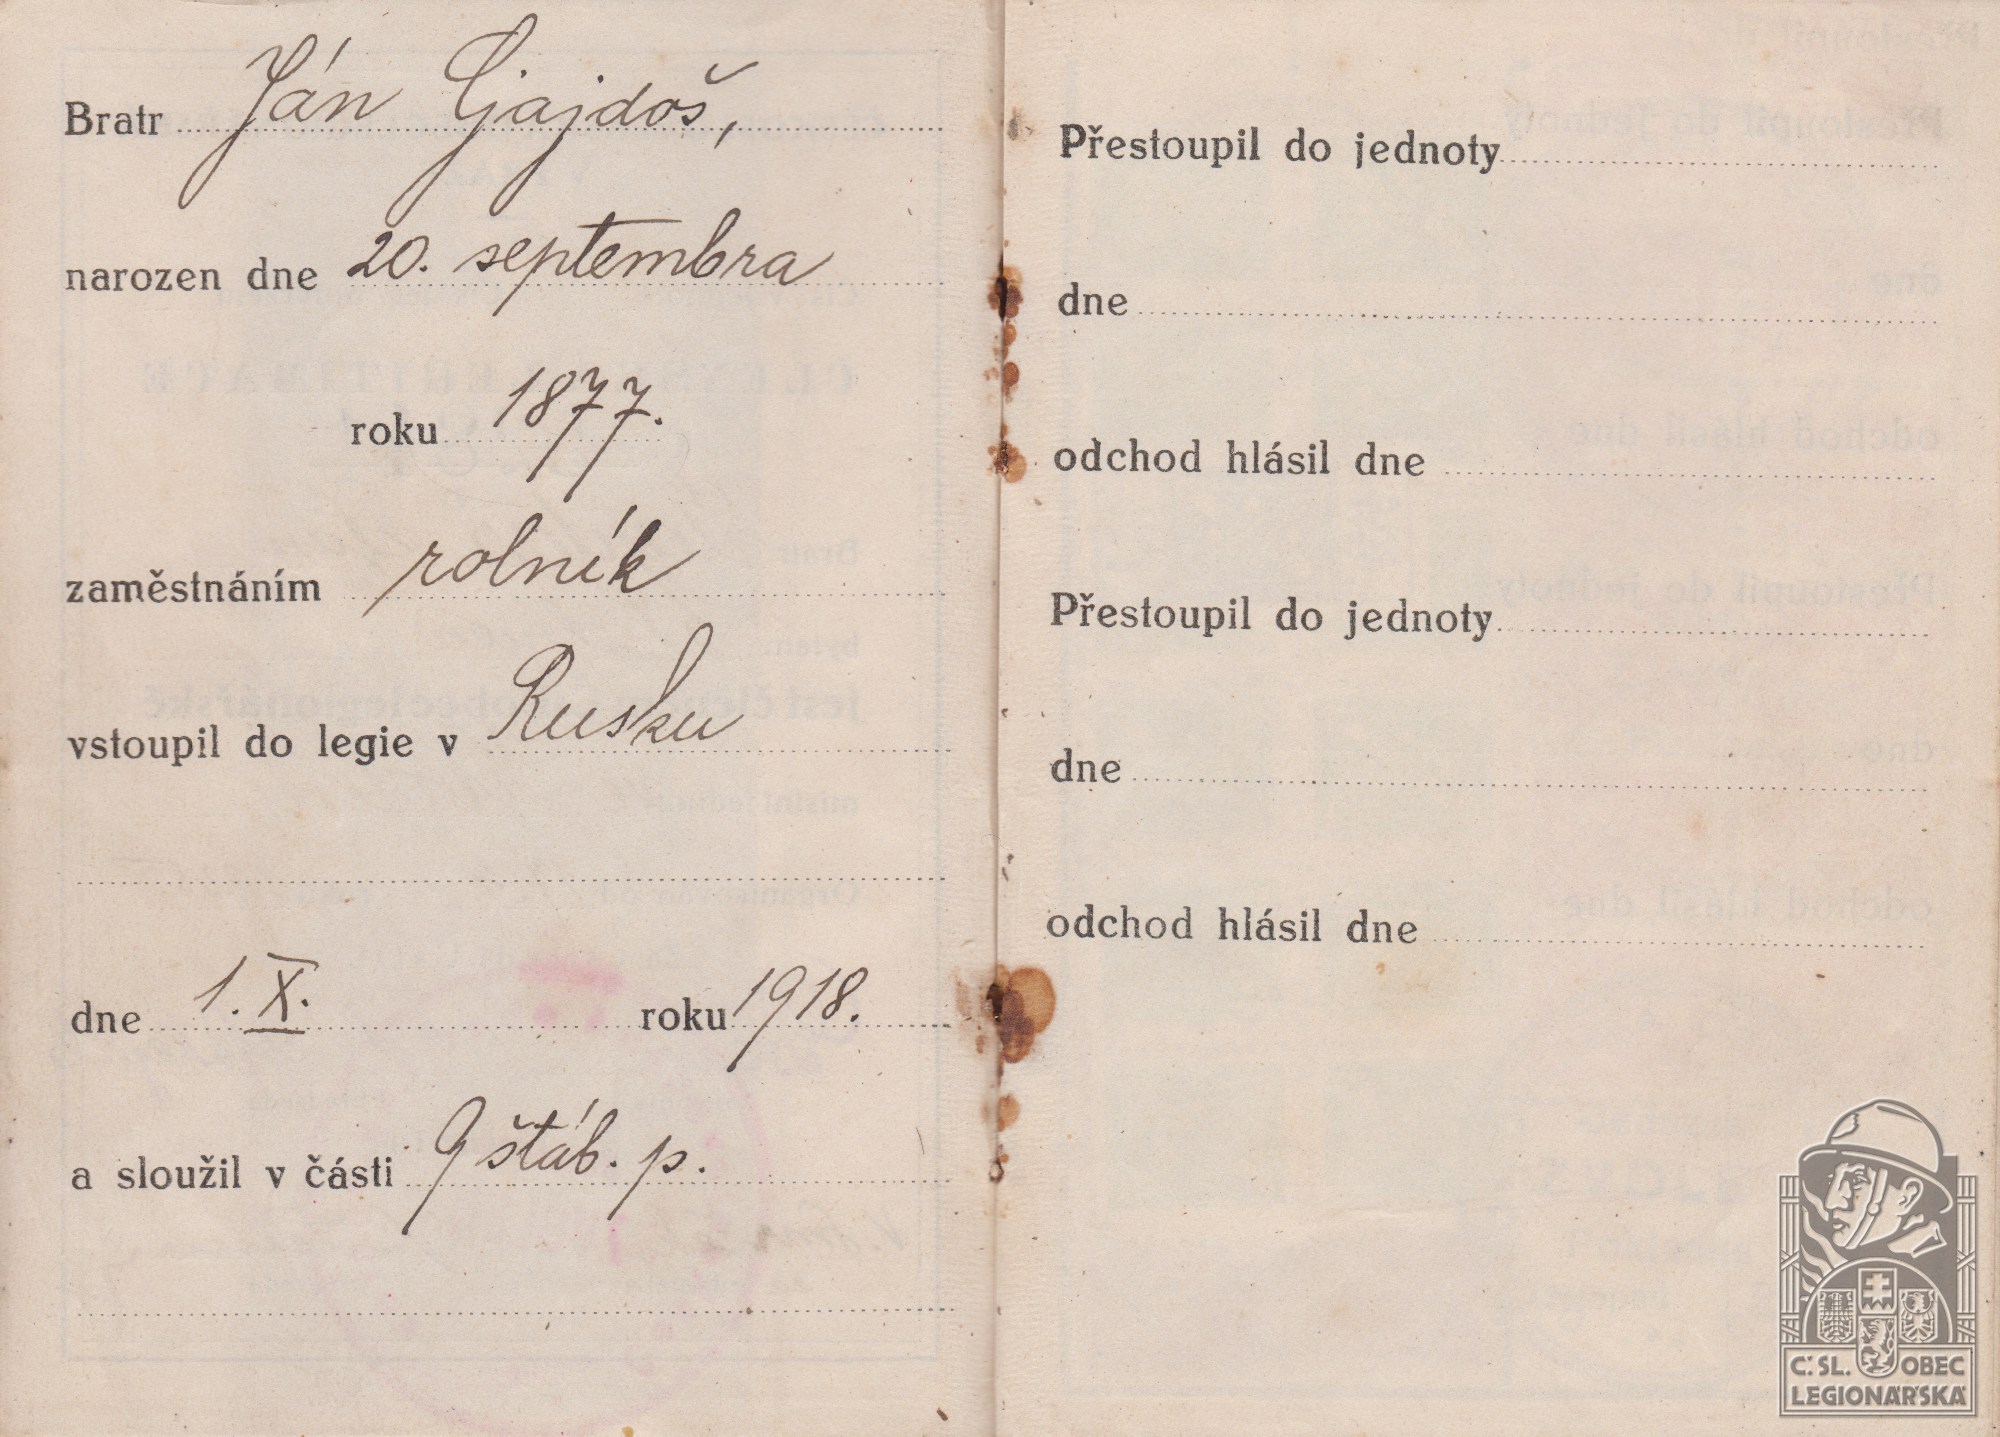 Bratr Ján Gajdoš,
narozen dne 20. septembra
roku 1877.
zaměstnáním rolník
vstoupil do legie v Rusku
dne 1. X. roku 1918.
a sloužil v části 9 štáb. p.
Přestoupil do jednoty
dne
odchod hlásil dne
Přestoupil do jednoty
dne
odchod hlásil dne
Č. SL. OBEC
LEGIONÁŘSKÁ